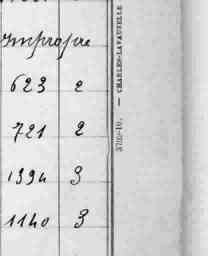 Impropre
623 2
721 2
1394 3
1140 3
3700-10. — CHARLES-LAVAUZELLE